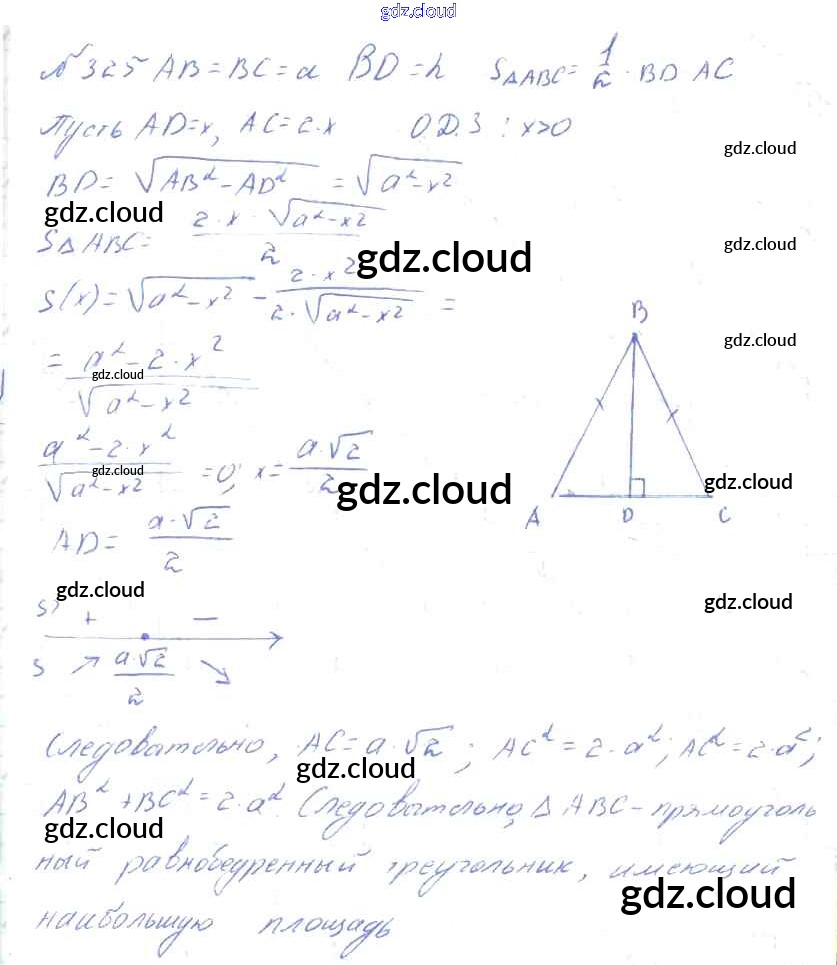 gdz.cloud
№ 325 AB = BC = a BD = h S△ABC = 1/2 · BD AC
Пусть AD = x, AC = 2·x О.Д.З : x>0
gdz.cloud
BD = √(AB² - AD²) = √(a² - x²)
gdz.cloud
S△ABC = (2·x·√(a² - x²))/2
gdz.cloud
gdz.cloud
S(x) = √(a² - x²) - (2·x²)/(2·√(a² - x²)) =
B
gdz.cloud
= (a² - 2·x²)/√(a² - x²)
gdz.cloud
(a² - 2·x²)/√(a² - x²) = 0; x = (a·√2)/2
gdz.cloud
gdz.cloud
gdz.cloud
A D C
AD = (a·√2)/2
gdz.cloud
gdz.cloud
S' + -
S ↗ (a·√2)/2 ↘
Следовательно, AC = a·√2; AC² = 2·a²; AC² = 2·a²;
gdz.cloud
AB² + BC² = 2·a². Следовательно, △ ABC - прямоуголь
gdz.cloud
ный равнобедренный треугольник, имеющий
gdz.cloud
наибольшую площадь